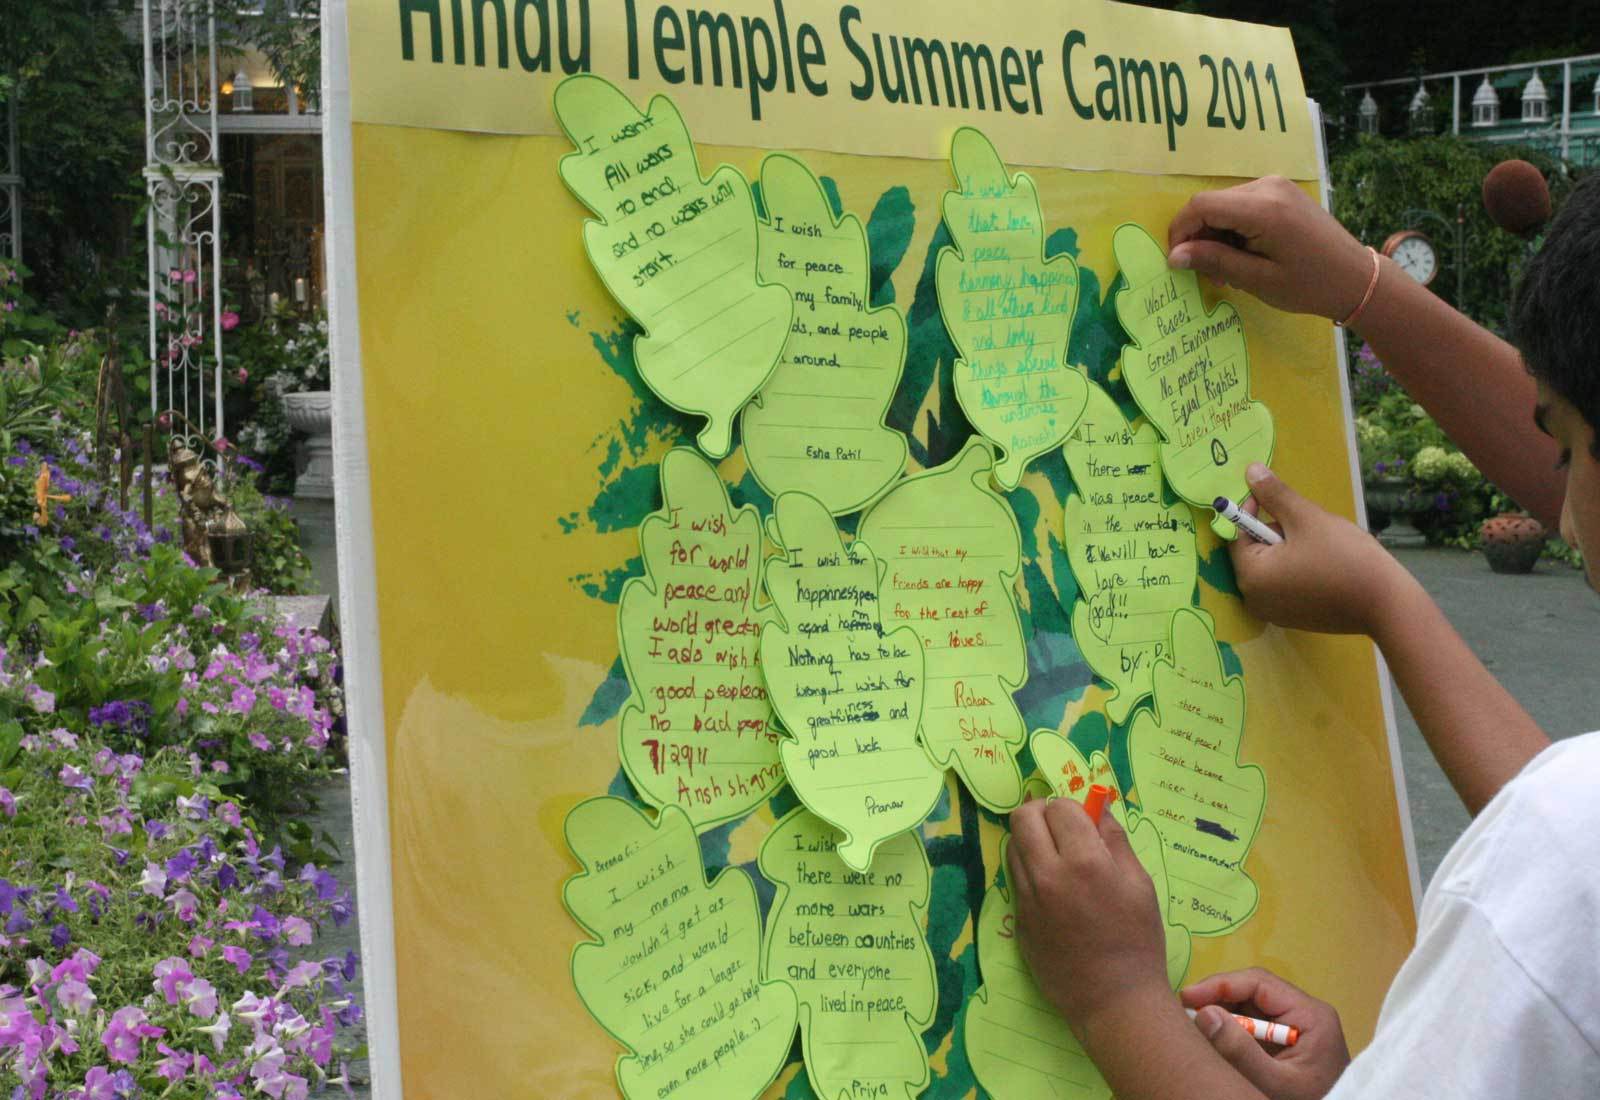 Hindu Temple Summer Camp 2011
I want
All wars
to end,
and no wars will
start.
I wish
for peace
my family,
ds, and people
around
Esha Patil
I wish
that love
peace,
harmony, happiness
& all other kind
and lovly
things spread
through the
universe
Aarushi
World
Peace!
Green Envirornment!
No poverty!
Equal Rights!
Love! Happiness!
I wish
there
was peace
in the world
I will have
love from
god!!!
by:
I wish
for world
peace and
world greatn
I aslo wish
good people an
no bad people
7/29/11
Ansh sharm
I wish for
happinness, pea
ce, and harmony
Nothing has to be
wong. I wish for
greatness and
good luck
Pranav
I wish that my
friends are happy
for the rest of
r loves.
Rohan
Shah
7/29/11
I wish
there was
world peace!
People became
nicer to each
other.
environmentar
ev Basandra
Breena C.:
I wish
my mema
wouldn't get as
sick, and would
live for a longer
time, so she could go help
even more people. :)
I wish
there were no
more wars
between countries
and everyone
lived in peace
Priya
S